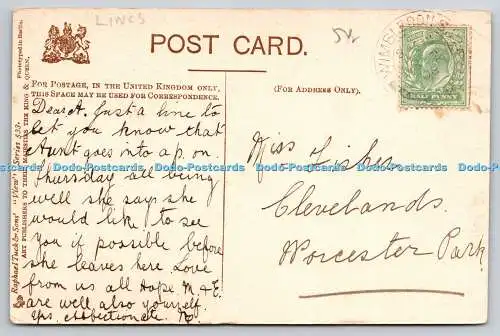 LINCS
POST CARD.
FOR POSTAGE, IN THE UNITED KINGDOM ONLY,
THIS SPACE MAY BE USED FOR CORRESPONDENCE.
(FOR ADDRESS ONLY).
WIMBLEDON
HALF PENNY
Dear A. Just a line to
let you know that
Aunt goes into ap. on
Thursday all being
well she says she
would like to see
you if possible before
she leaves here Love
from us all Hope M & E
are well also yourself.
yrs affectionate
Miss Fisher
Clevelands.
Worcester Park
Raphael Tuck & Sons' "View" Series
ART PUBLISHERS TO THEIR MAJESTIES THE KING & QUEEN.
Phototyped in Berlin.
Dodo-Postcards Dodo-Postcards Dodo-Postcards Dodo-Postcards Dodo-Postcards